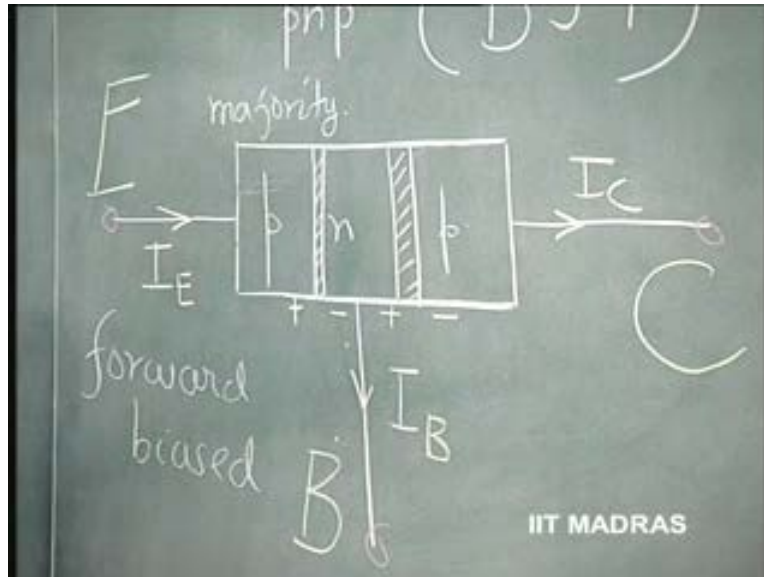 pnp (BJT)
E
majority.
I_C
p n p
I_E
C
+ - + -
forward
biased
I_B
B
IIT MADRAS